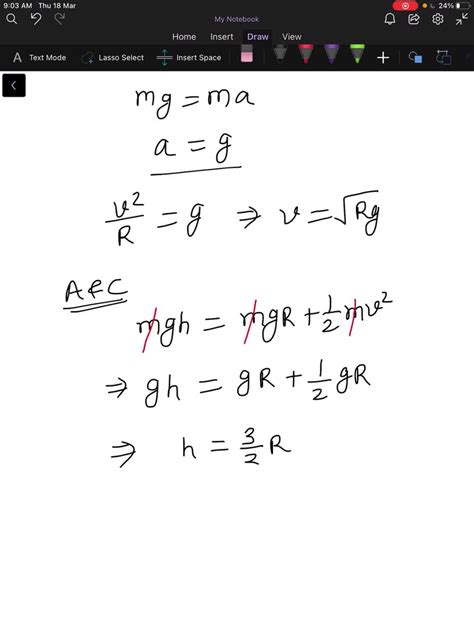 9:03 AM Thu 18 Mar
24%
My Notebook
Home Insert Draw View
A Text Mode Lasso Select Insert Space
mg = ma
a = g
v²/R = g ⇒ v = √Rg
A & C
mgh = mgR + 1/2 mv²
⇒ gh = gR + 1/2 gR
⇒ h = 3/2 R